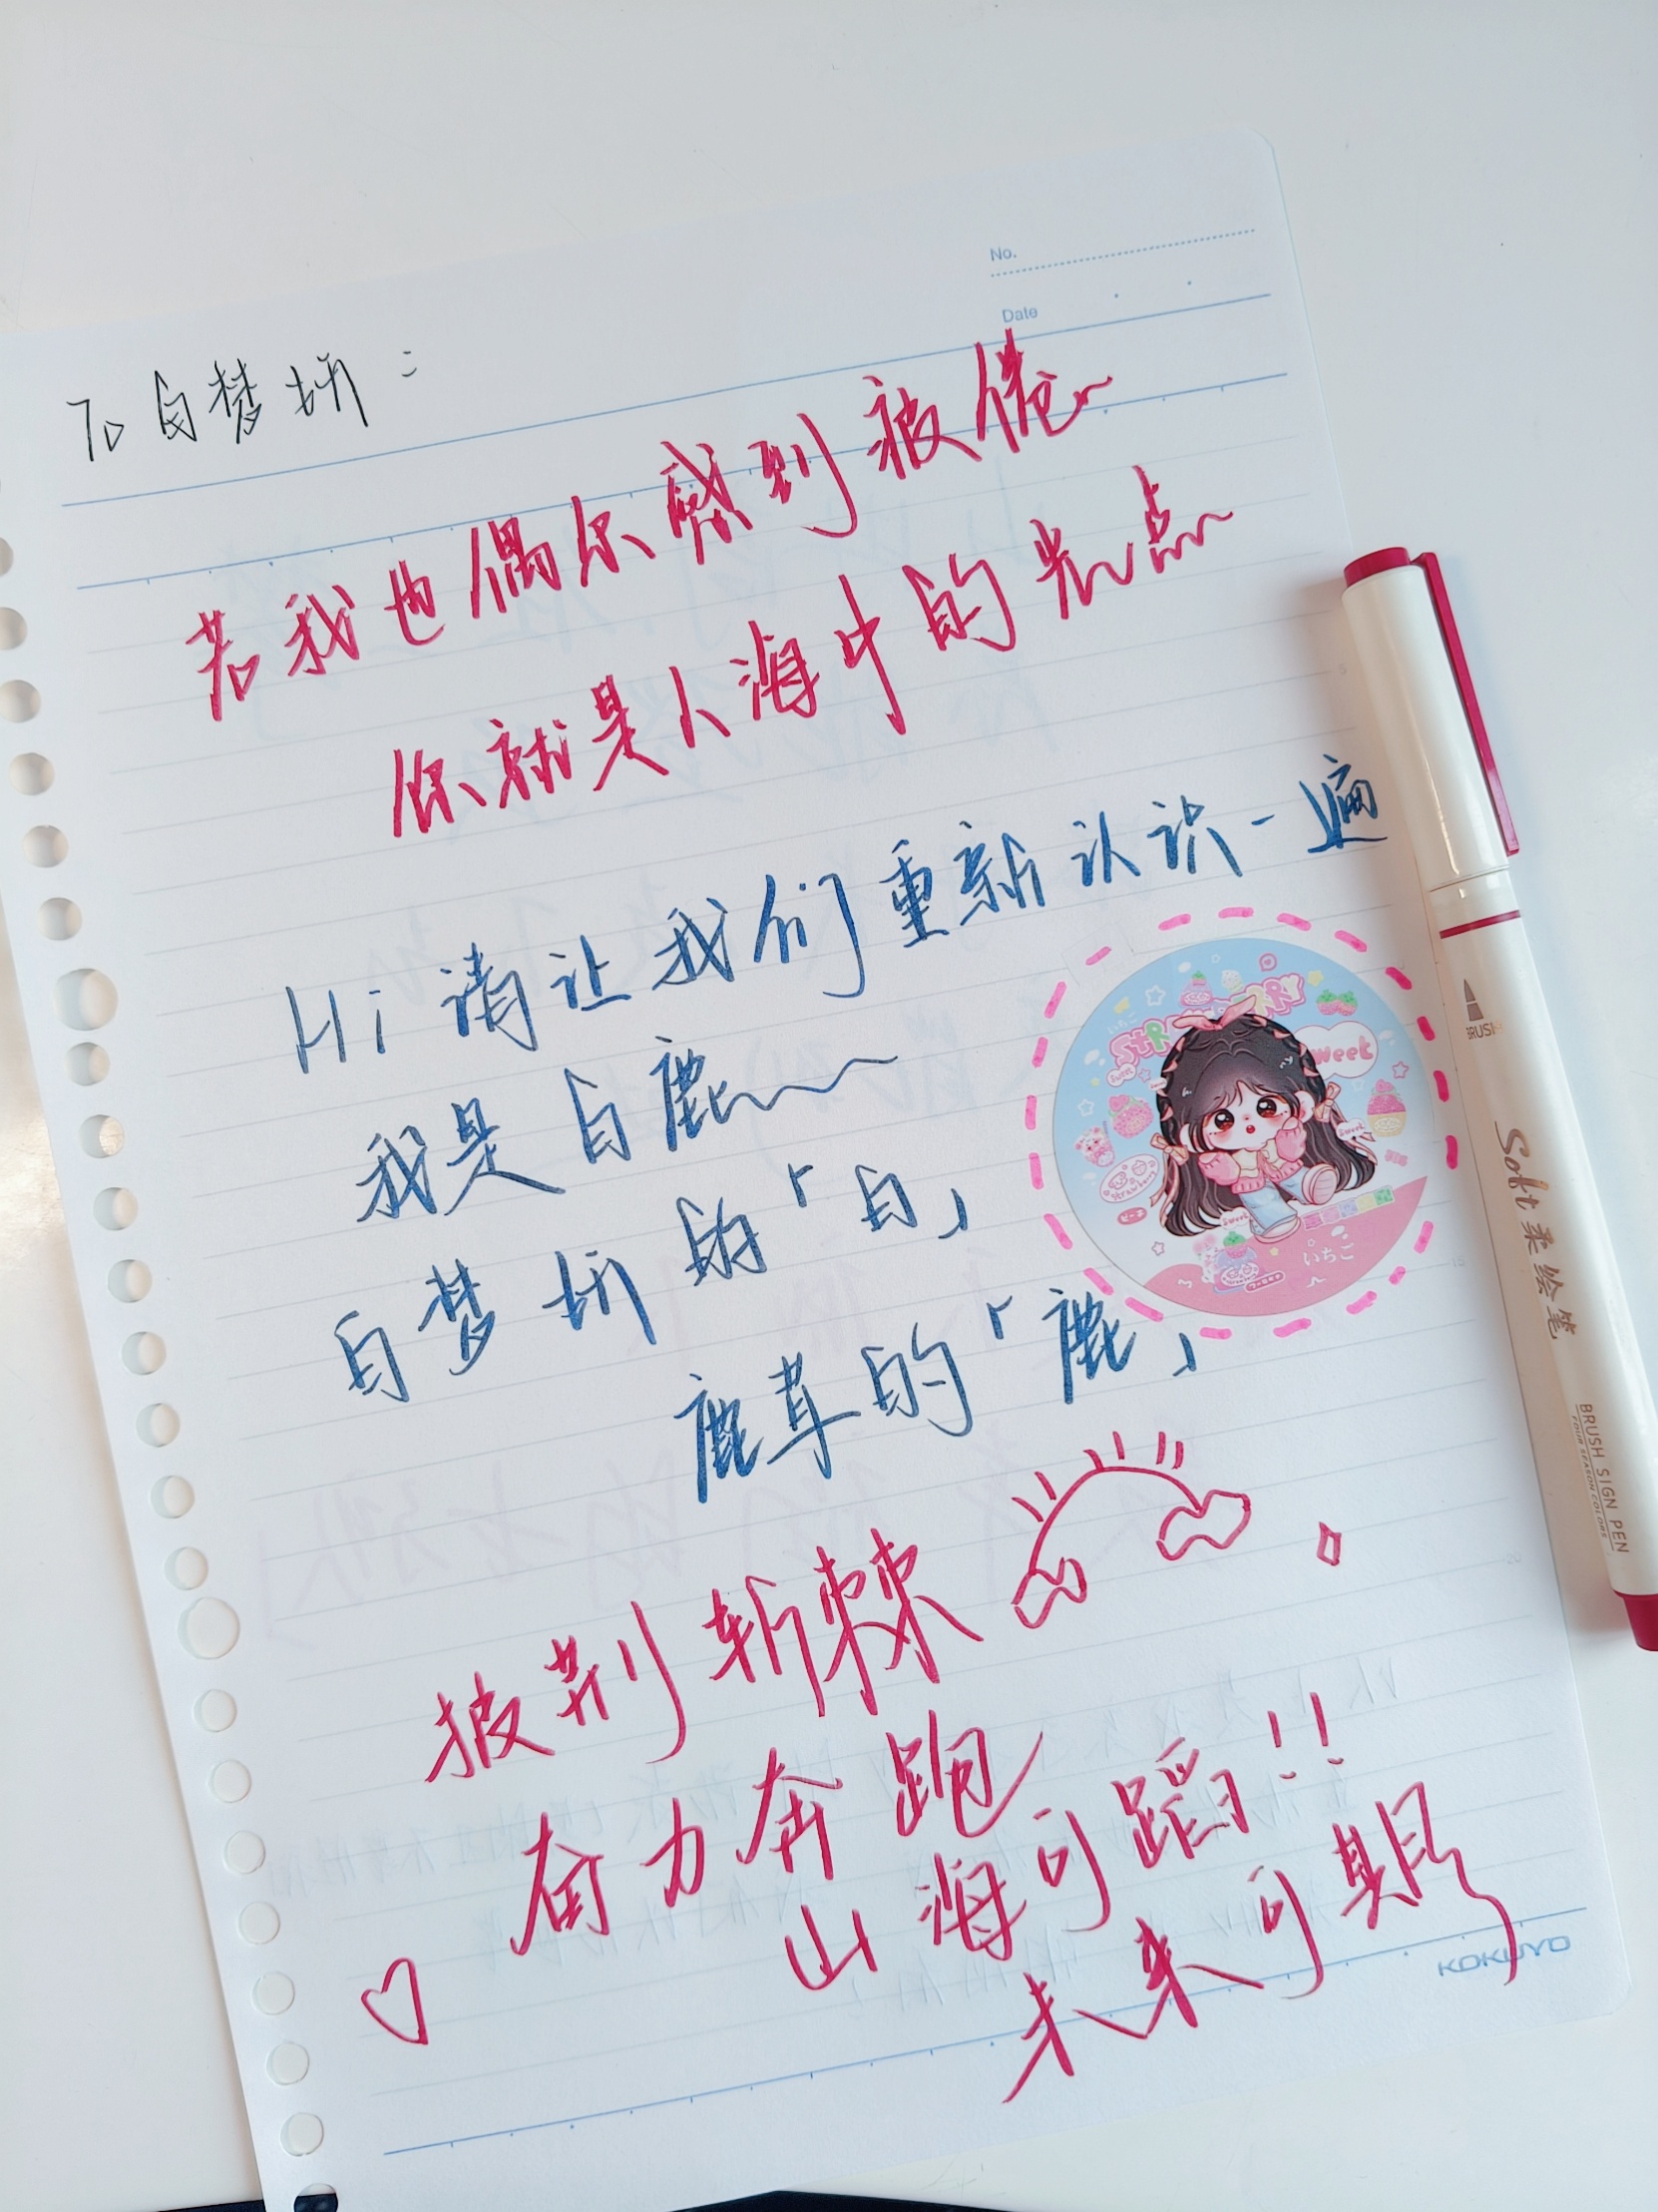 No.
Date
To 白梦妍：
若我也偶尔感到疲倦
你就是人海中的光点
Hi 请让我们重新认识一遍
我是白鹿
白梦妍的「白」
鹿茸的「鹿」
STRAWBERRY
Sweet
Week
いちご
披荆斩棘
奋力奔跑
山海可蹈!!
未来可期
KOKUYO
BRUSH
Soft 柔绘笔
BRUSH SIGN PEN
FOUR SEASON COLORS